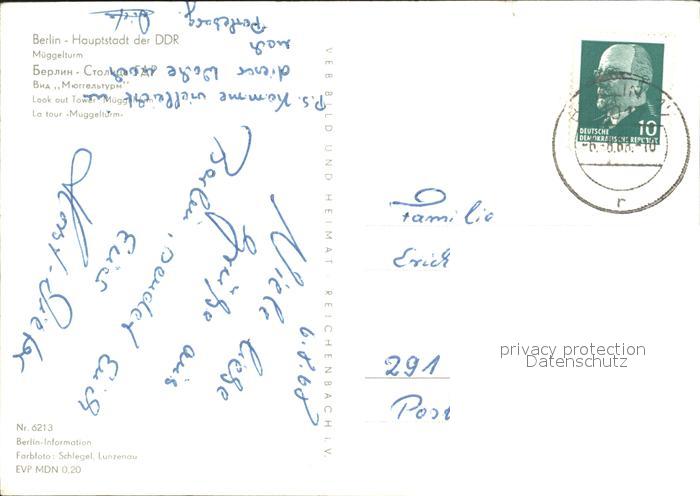 Berlin - Hauptstadt der DDR
Müggelturm
Берлин - Столица ГДР
Вид „Мюггельтурм"
Look out Tower "Müggelturm"
La tour «Müggelturm»
P.S. Komme vielleicht in
dieser Woche noch
nach
Perleberg
Dieter
6.8.68
Viele liebe
Grüße aus
Berlin, sendet Euch
Euer
Horst-Dieter
VEB BILD UND HEIMAT · REICHENBACH i. V.
DEUTSCHE 10
DEMOKRATISCHE REPUBLIK
BERLIN
-6.-8.68.-10
r
Familie
Erich
291
Post
privacy protection
Datenschutz
Nr. 6213
Berlin-Information
Farbfoto: Schlegel, Lunzenau
EVP MDN 0,20